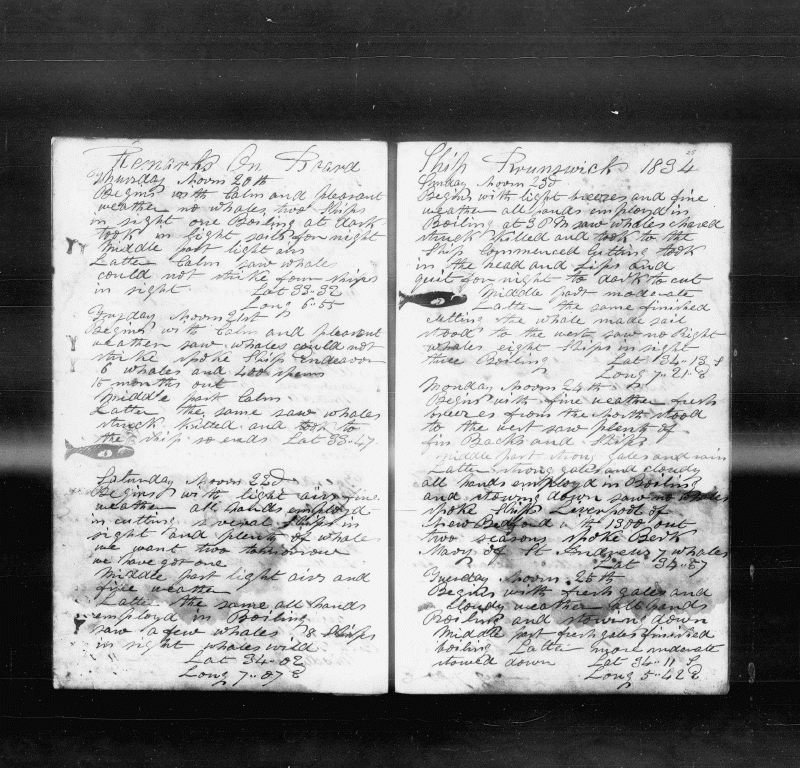 Remarks On Board
Thursday Noom 20th
Begins with Calm and pleasant
weather no whales two Ships
in sight one Boiling at dark
took in light sails for night
Middle part light airs
Latter Calm saw whale
could not strike four ships
in sight Lat 33-32
Long 6-55
Fryday Noom 21st
Begins with Calm and pleasant
weather saw whales could not
strike spoke Ship Endeavor
6 whales and 400 sperm
15 months out
Middle part Calm
Latter the same saw whales
struck killed and took to
the ship so ends Lat 33-47
Saturday Noom 22d
Begins with light airs fine
weather all hands employd
in cutting several Ships in
sight and plenty of whales
we want two tomorrow
we have got one
Middle part light airs and
fine weather
Latter the same all hands
employd in Boiling
saw a few whales 8 Ships
in sight whales wild
Lat 34-02
Long 7-07 E
Ship Brunswick 1834
25
Sunday Noom 23d
Begins with light breezes and fine
weather all hands employd in
Boiling at 3 PM saw whales chased
struck killed and took to the
Ship commenced Cutting took
in the head and Lips and
quit for night to dark to cut
Middle part moderate
Latter the same finished
cutting the whale made sail
stood to the west saw no Right
whales eight Ships in sight
three Boiling Lat 34-13 S
Long 7-21 E
Monday Noom 24th
Begins with fine weather fresh
breezes from the North stood
to the west saw plenty of
fin Backs and Ships
Middle part strong gales and rain
Latter strong gales and cloudy
all hands employd in Boiling
and stowing down saw no whales
spoke Ship Liverpool of
New Bedford with 1300 out
two seasons spoke Bark
Mary of St Andrews 7 whales
Lat 34-57
Tuesday Noom 25th
Begins with fresh gales and
cloudy weather all hands
Boiling and stowing down
Middle part fresh gales finished
boiling Latter more moderate
stowed down Lat 34-11 S
Long 5-42 E